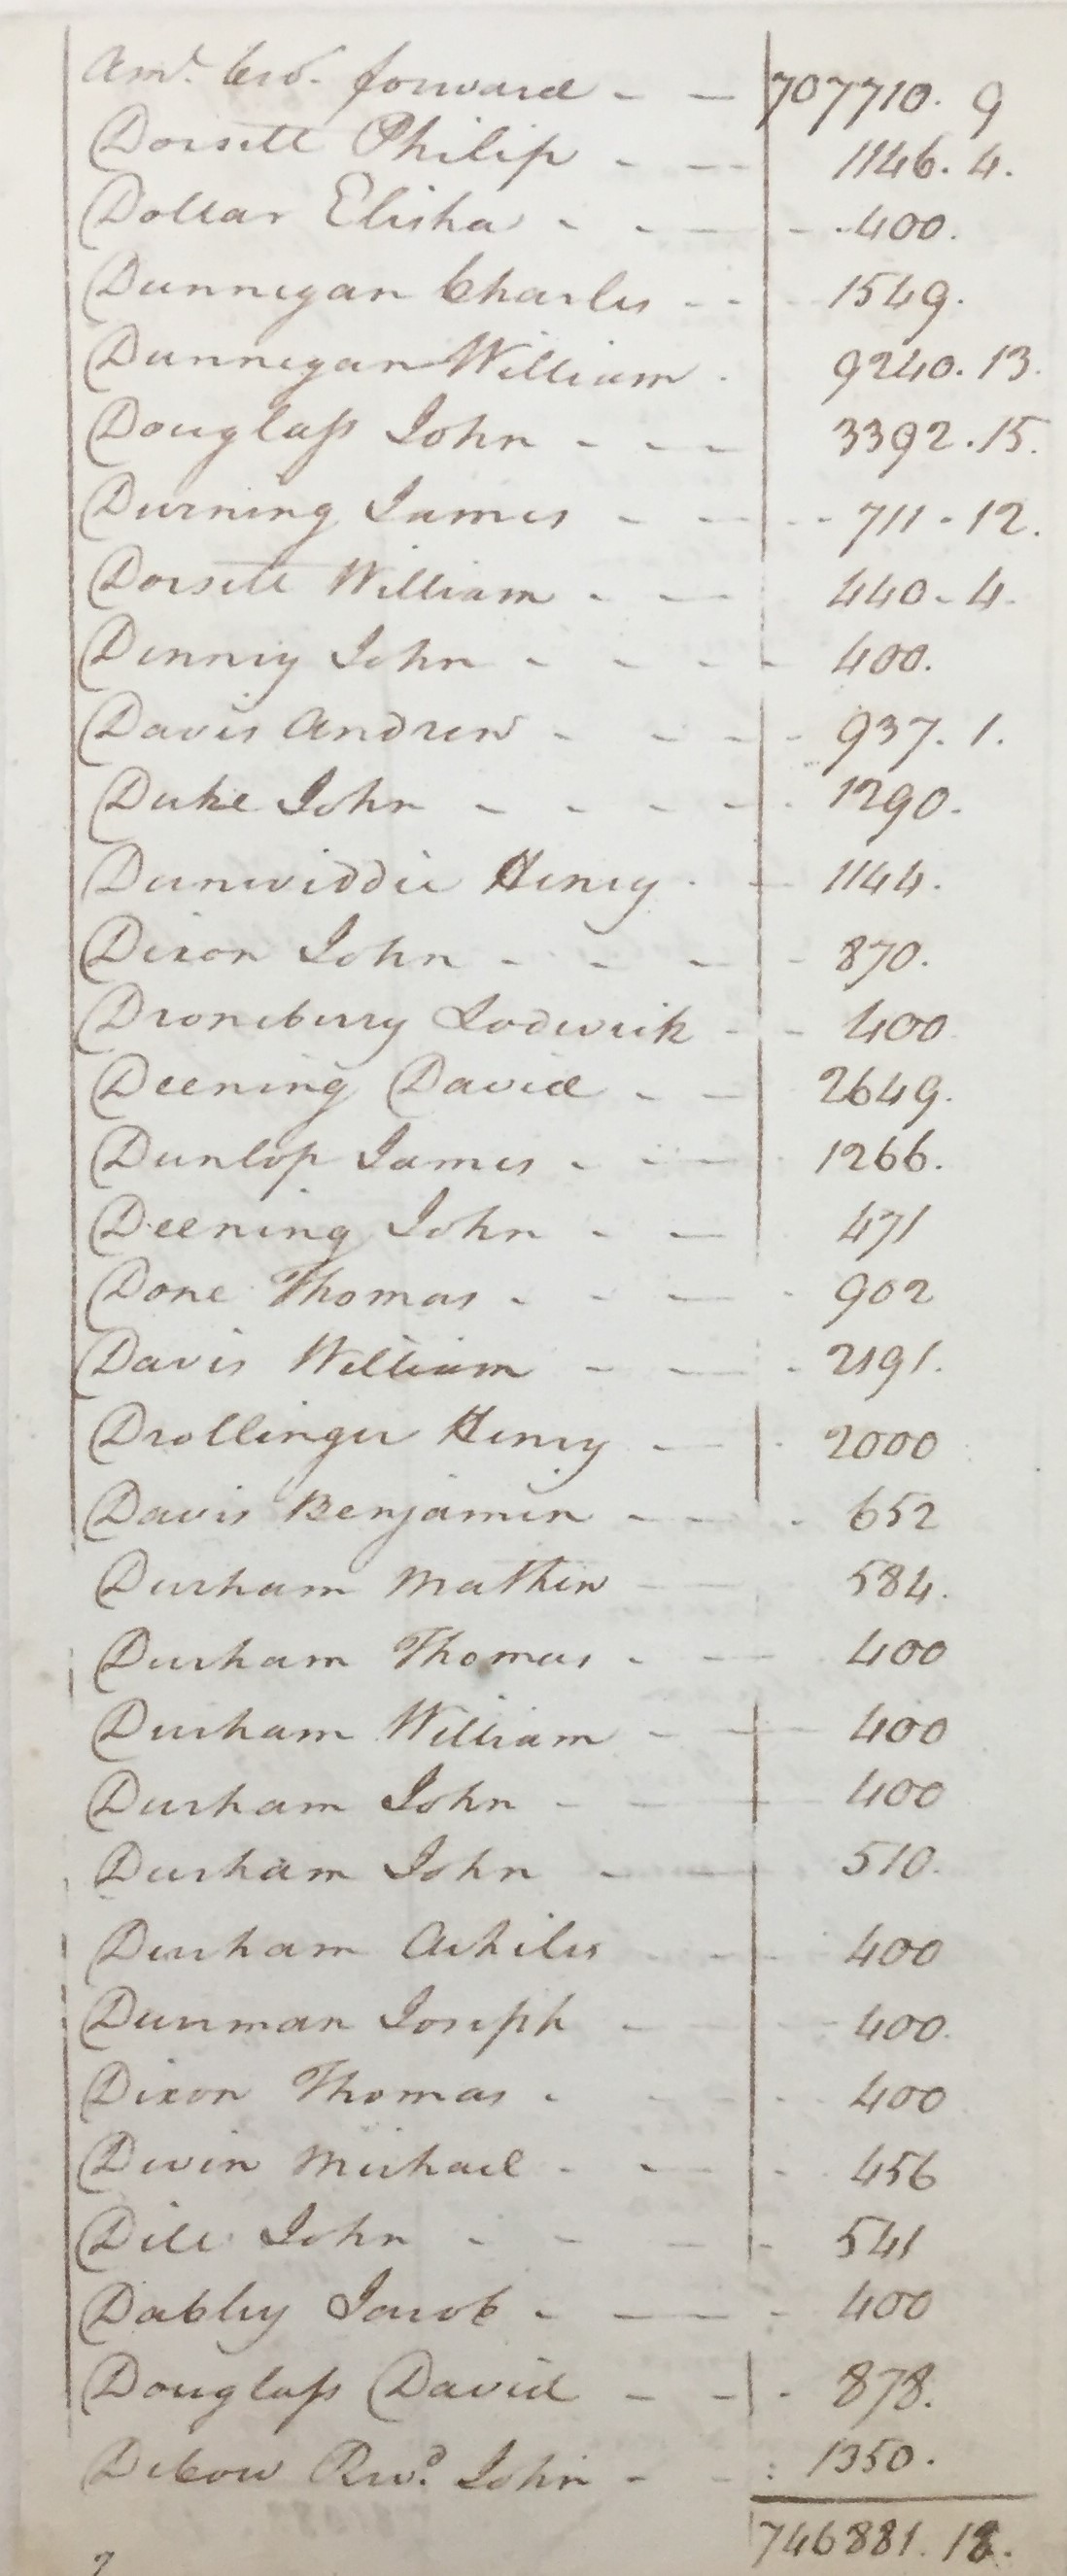 Amt. bro. forward - - 707710. 9
Dorsett Philip - - 1146. 4.
Dollar Elisha - - - 400.
Dunnegan Charles - - 1549.
Dunnegan William - 9240. 13.
Douglass John - - - 3392. 15.
Durning James - - - 711 - 12.
Dorsett William - - 440 - 4.
Denney John - - - - 400.
Davis Andrew - - - - 937. 1.
Duke John - - - - 1290.
Dunwiddie Henry - - 1144.
Dixon John - - - - 870.
Droneberry Lodwick - - 400
Deening David - - 2649.
Dunlop James - - - 1266.
Deening John - - 471
Done Thomas - - - - 902
Davis William - - - 2191.
Drollinger Henry - - 2000
Davis Benjamin - - - 652
Durham Mathew - - 584.
Durham Thomas - - 400
Durham William - - 400
Durham John - - 400
Durham John - - 510.
Durham Achiles - - 400
Dunman Joseph - - 400.
Dixon Thomas - - - 400
Devin Michael - - - 456
Dill John - - - - 541
Dabley Jacob - - - 400
Douglass David - - - 878.
Debow Revd. John - - 1350.
746881. 18.